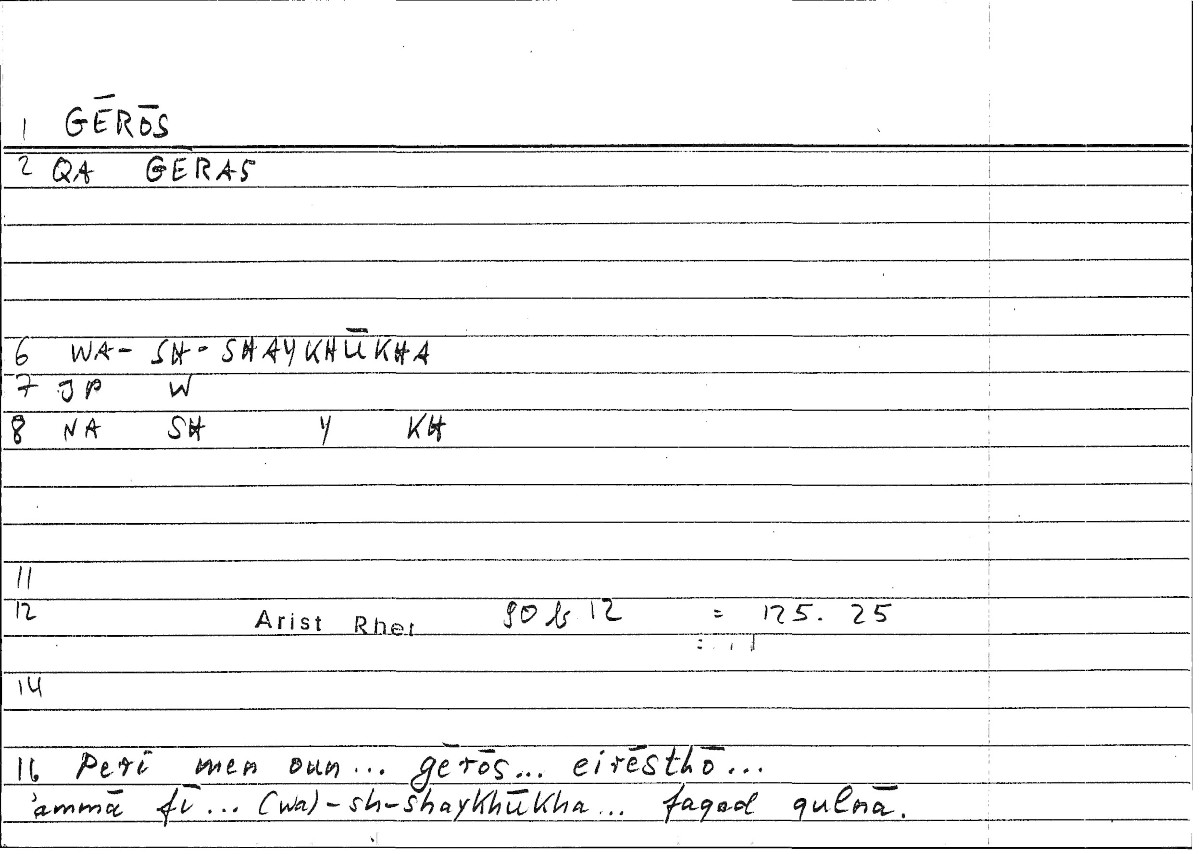 1 GĒRŌS
2 QA GERAS
6 WA- SH-SHAYKHŪKHA
7 JP W
8 NA SH Y KH
11
12 Arist Rhet 90 b 12 = 125. 25
14
16 Peri men oun... gērōs... eirēsthō...
'ammā fī... (wa)-sh-shaykhūkha... faqad qulnā.